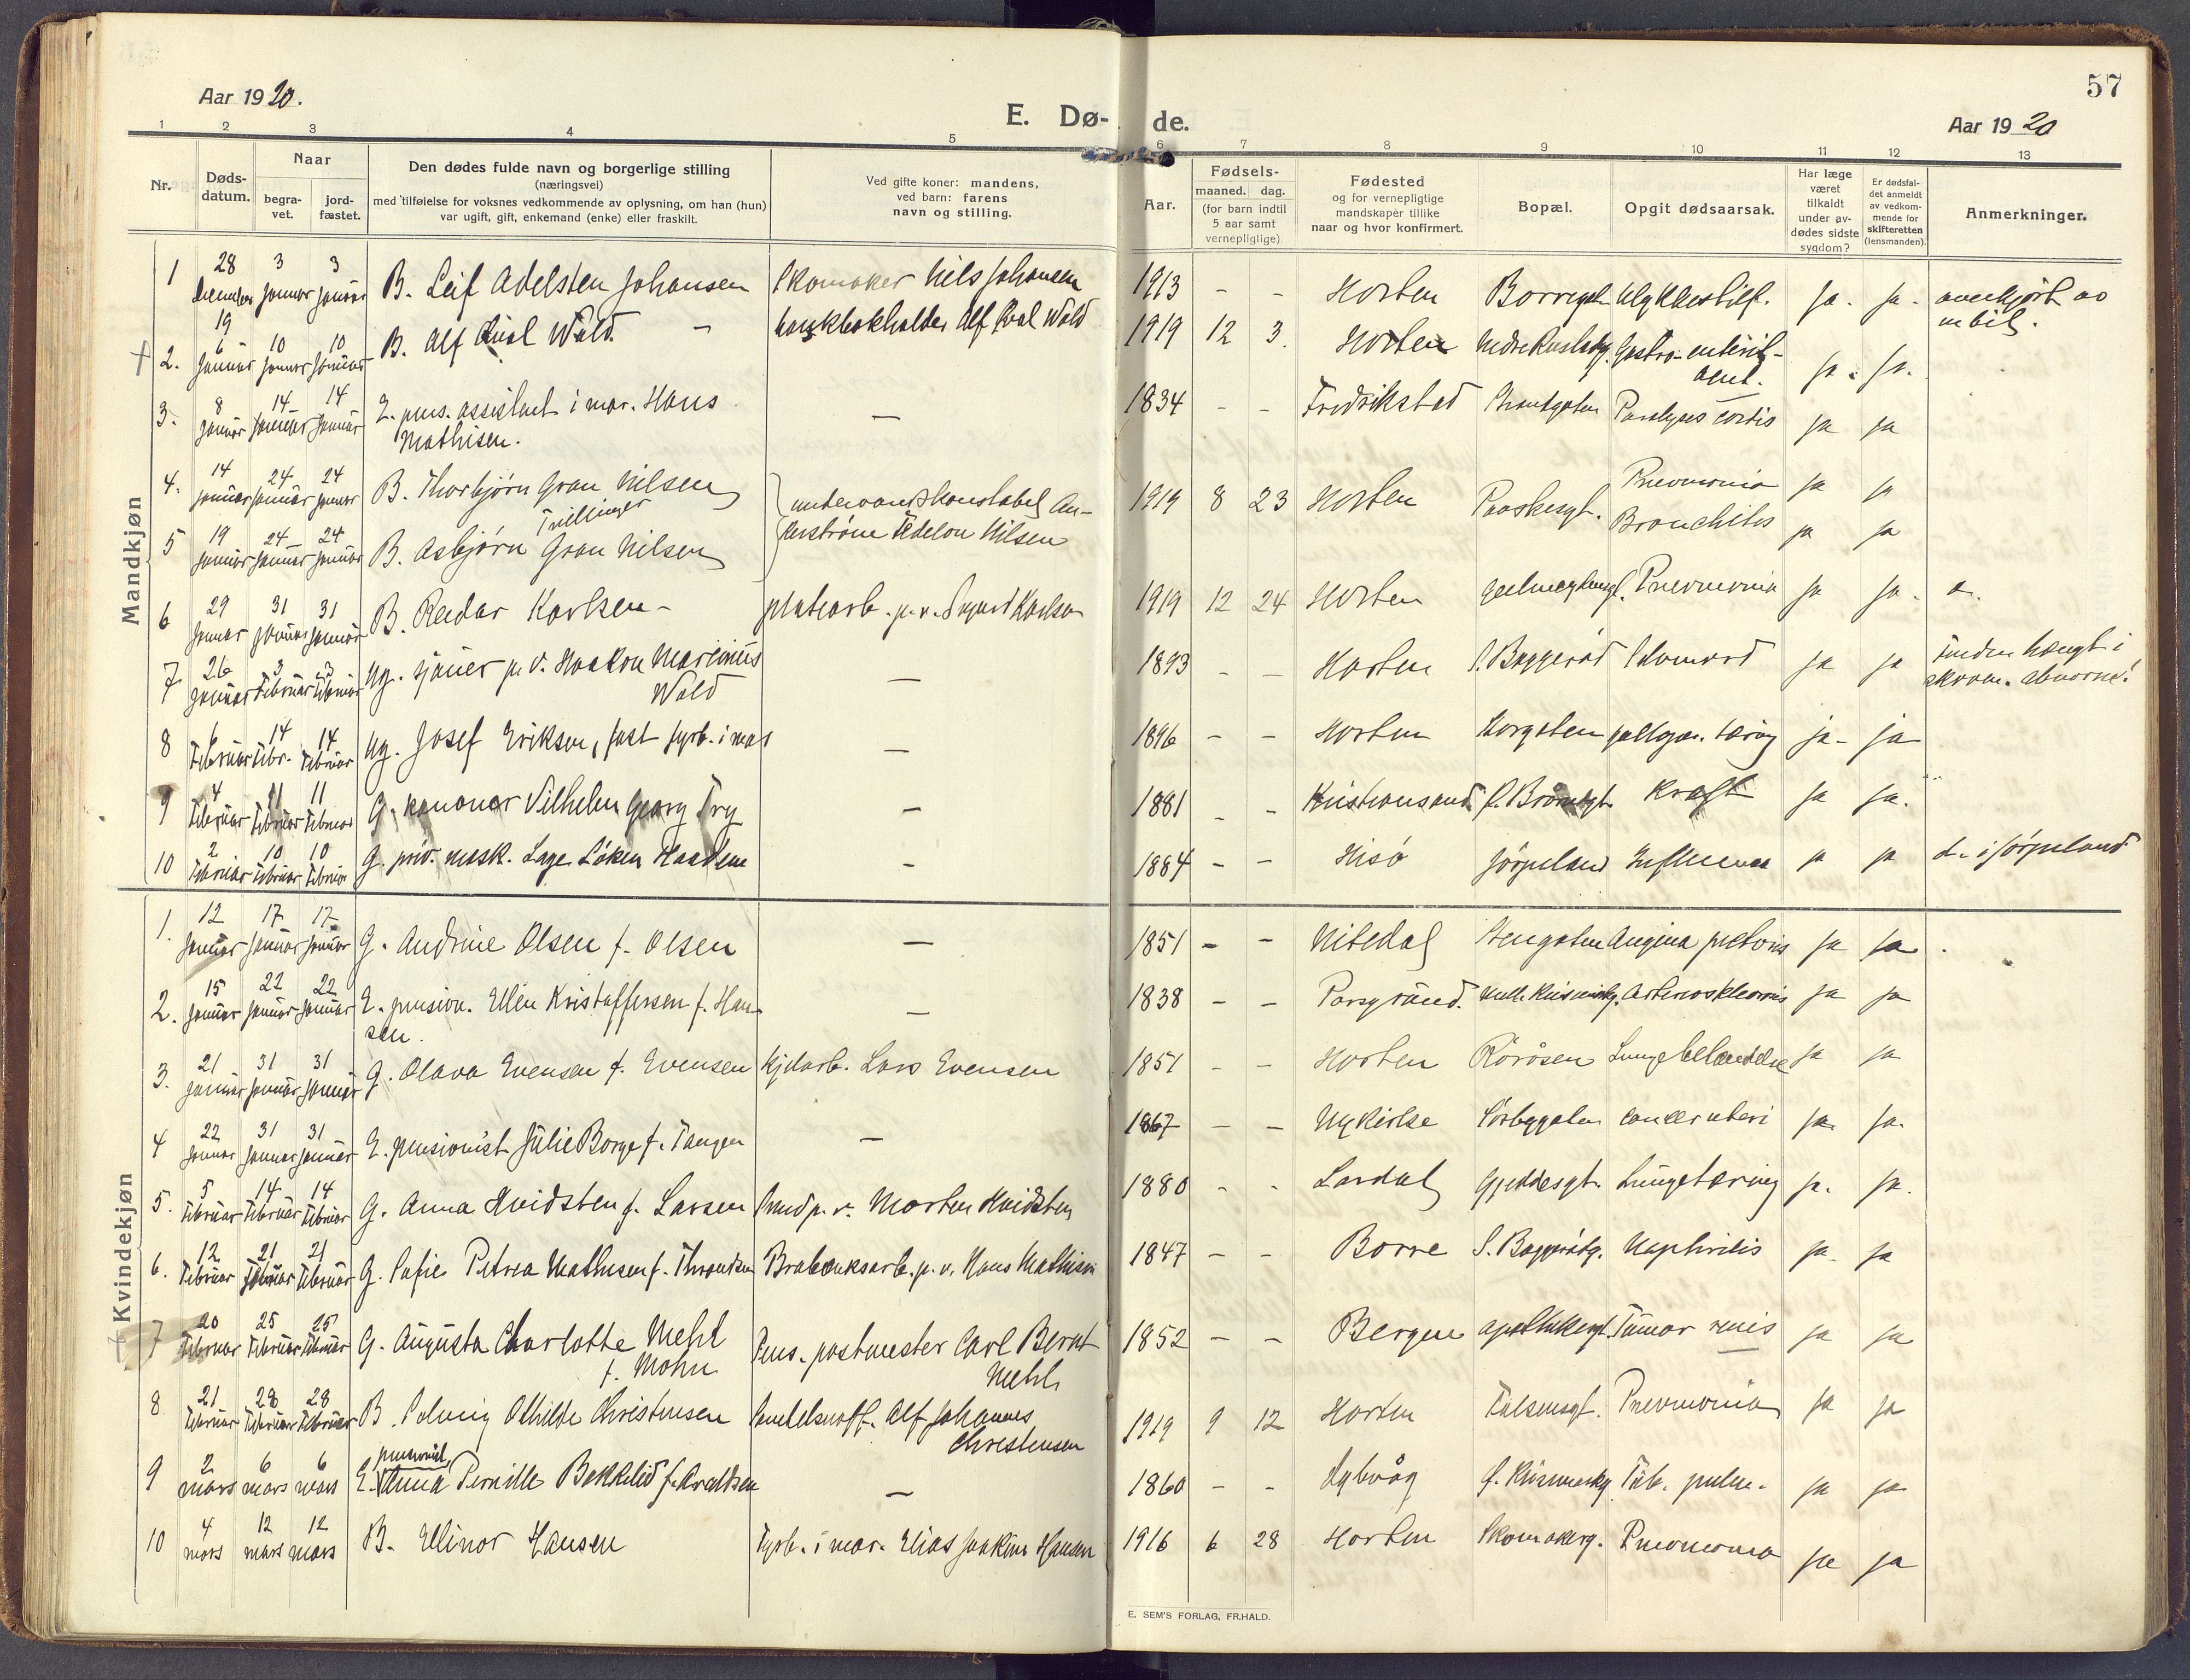 57
Aar 1920.
E. Dø- de.
Aar 1920
1 2 3 4 5 6 7 8 9 10 11 12 13
Nr.
Døds-
datum.
Naar
begra-
vet.
jord-
fæstet.
Den dødes fulde navn og borgerlige stilling
(næringsvei)
med tilføielse for voksnes vedkommende av oplysning, om han (hun)
var ugift, gift, enkemand (enke) eller fraskilt.
Ved gifte koner: mandens,
ved barn: farens
navn og stilling.
Aar.
Fødsels-
maaned. dag.
(for barn indtil
5 aar samt
vernepligtige)
Fødested
og for vernepligtige
mandskaper tillike
naar og hvor konfirmert.
Bopæl.
Opgit dødsaarsak.
Har læge
været
tilkaldt
under av-
dødes sidste
sygdom?
Er dødsfal-
det anmeldt
av vedkom-
mende for
skifteretten
(lensmanden).
Anmerkninger.
Mandkjøn
1 28 December 19 3 Januar 3 Januar B. Leif Adelsten Johansen Skomaker Nils Johansen 1913 - - Horten Borregt. Ulykkestilf. Ja. Ja. overkjørt av
en bil.
2. 6 Januar 10 Januar 10 Januar B. Alf Wold - Alf Wold 1919 12 3. Horten Gastro-enterit-
acut. ja. ja.
3. 8 Januar 14 Januar 14 Januar E. pens. assistent i mar. Hans
Mathisen. — 1834 - - Fredrikstad Strandgaten Paralyses cordis ja ja
4. 14 Januar 24 Januar 24 Januar B. Thorbjørn Gran Nilsen 1919 8 23 Horten Paaskesgt. Pneumonia ja ja
Tvillinger
undervandskonstabel An-
Edelon Nilsen
5 19 Januar 24 Januar 24 Januar B. Asbjørn Gran Nilsen Bronchitis ja ja
6 29 Januar 31 Januar 31 Januar B. Reidar Karlsen - platearb. p. v. Sigurd Karlsen 1919 12 24 Horten Pneumonia ja ja.
7 26 Januar 3 Februar 3 Februar Ug. sjauer p. v. Haakon Marinius
Wold — 1893 - - Horten S. Baggerød Selvmord ja ja funden hængt i
8 6 Februar 14 Febr. 14 Februar Ug. Josef Eriksen, fast fyrb. i mar — 1896 - - Horten Storgaten tæring ja - ja
9 4 Februar 11 Februar 11 Februar G. kanoner Vilhelm Georg Try — 1881 - - Kristiansand Kræft ja ja.
10 2 Februar 10 Februar 10 Februar G. priv. mask. Lage Løken Haadem - 1884 - - Hisø Jørpeland Influensa ja ja d. i Jørpeland
Kvindekjøn
1. 12 Januar 17 Januar 17 Januar G. Andrine Olsen f. Olsen — 1851 - - Nitedal Stengaten Angina pectoris ja ja
2. 15 Januar 22 Januar 22 Januar E. pension. Ellen Kristoffersen f. Han-
sen. — 1838 - - Porsgrund. Arteriosklerosis ja ja
3. 21 Januar 31 Januar 31 Januar G. Olava Evensen f. Evensen Kjelarb. Lars Evensen 1851 - - Horten Røråsen Lungebetændelse ja ja
4 22 Januar 31 Januar 31 Januar E. pensionist Julie Borge f. Tangen — 1867 - - Nykirke Sørbygaten cancer uteri ja. ja.
5. 5 Februar 14 Februar 14 Februar G. Anna Hvidsten f. Larsen Smed p. v. Morten Hvidsten 1880 - - Lardal Gjeddesgt. Lungetæring ja. ja.
6. 12 Februar 21 Februar 21 Februar G. Sofie Petrea Mathisen f. Throndsen Brabænksarb. p. v. Hans Mathisen 1847 - - Borre S. Baggerødg. Nephritis ja. ja
7 20 Februar 25 Februar 25 Februar G. Augusta Charlotte Mehl
f. Mohn Pens. postmester Carl Bernt
Mehl 1852 - - Bergen apothekergt Tumor renis ja ja
8 21 Februar 28 Februar 28 Februar B. Solveig Othilde Christensen Alf Johannes
Christensen 1919 9 12 Horten Falsensgt. Pneumonia ja ja
9 2 mars 6 mars 6 mars E. pensionist Anna Pernille Bekkelid f. — 1860 - - Dybvåg Tub. pulm. ja ja
10 4 mars 12 mars 12 mars B. Ellinor Hansen Fyrb. i mar. Elias Joakim Hansen 1916 6 28 Horten Skomakerg. Pneumonia ja ja
E. SEM'S FORLAG, FR.HALD.